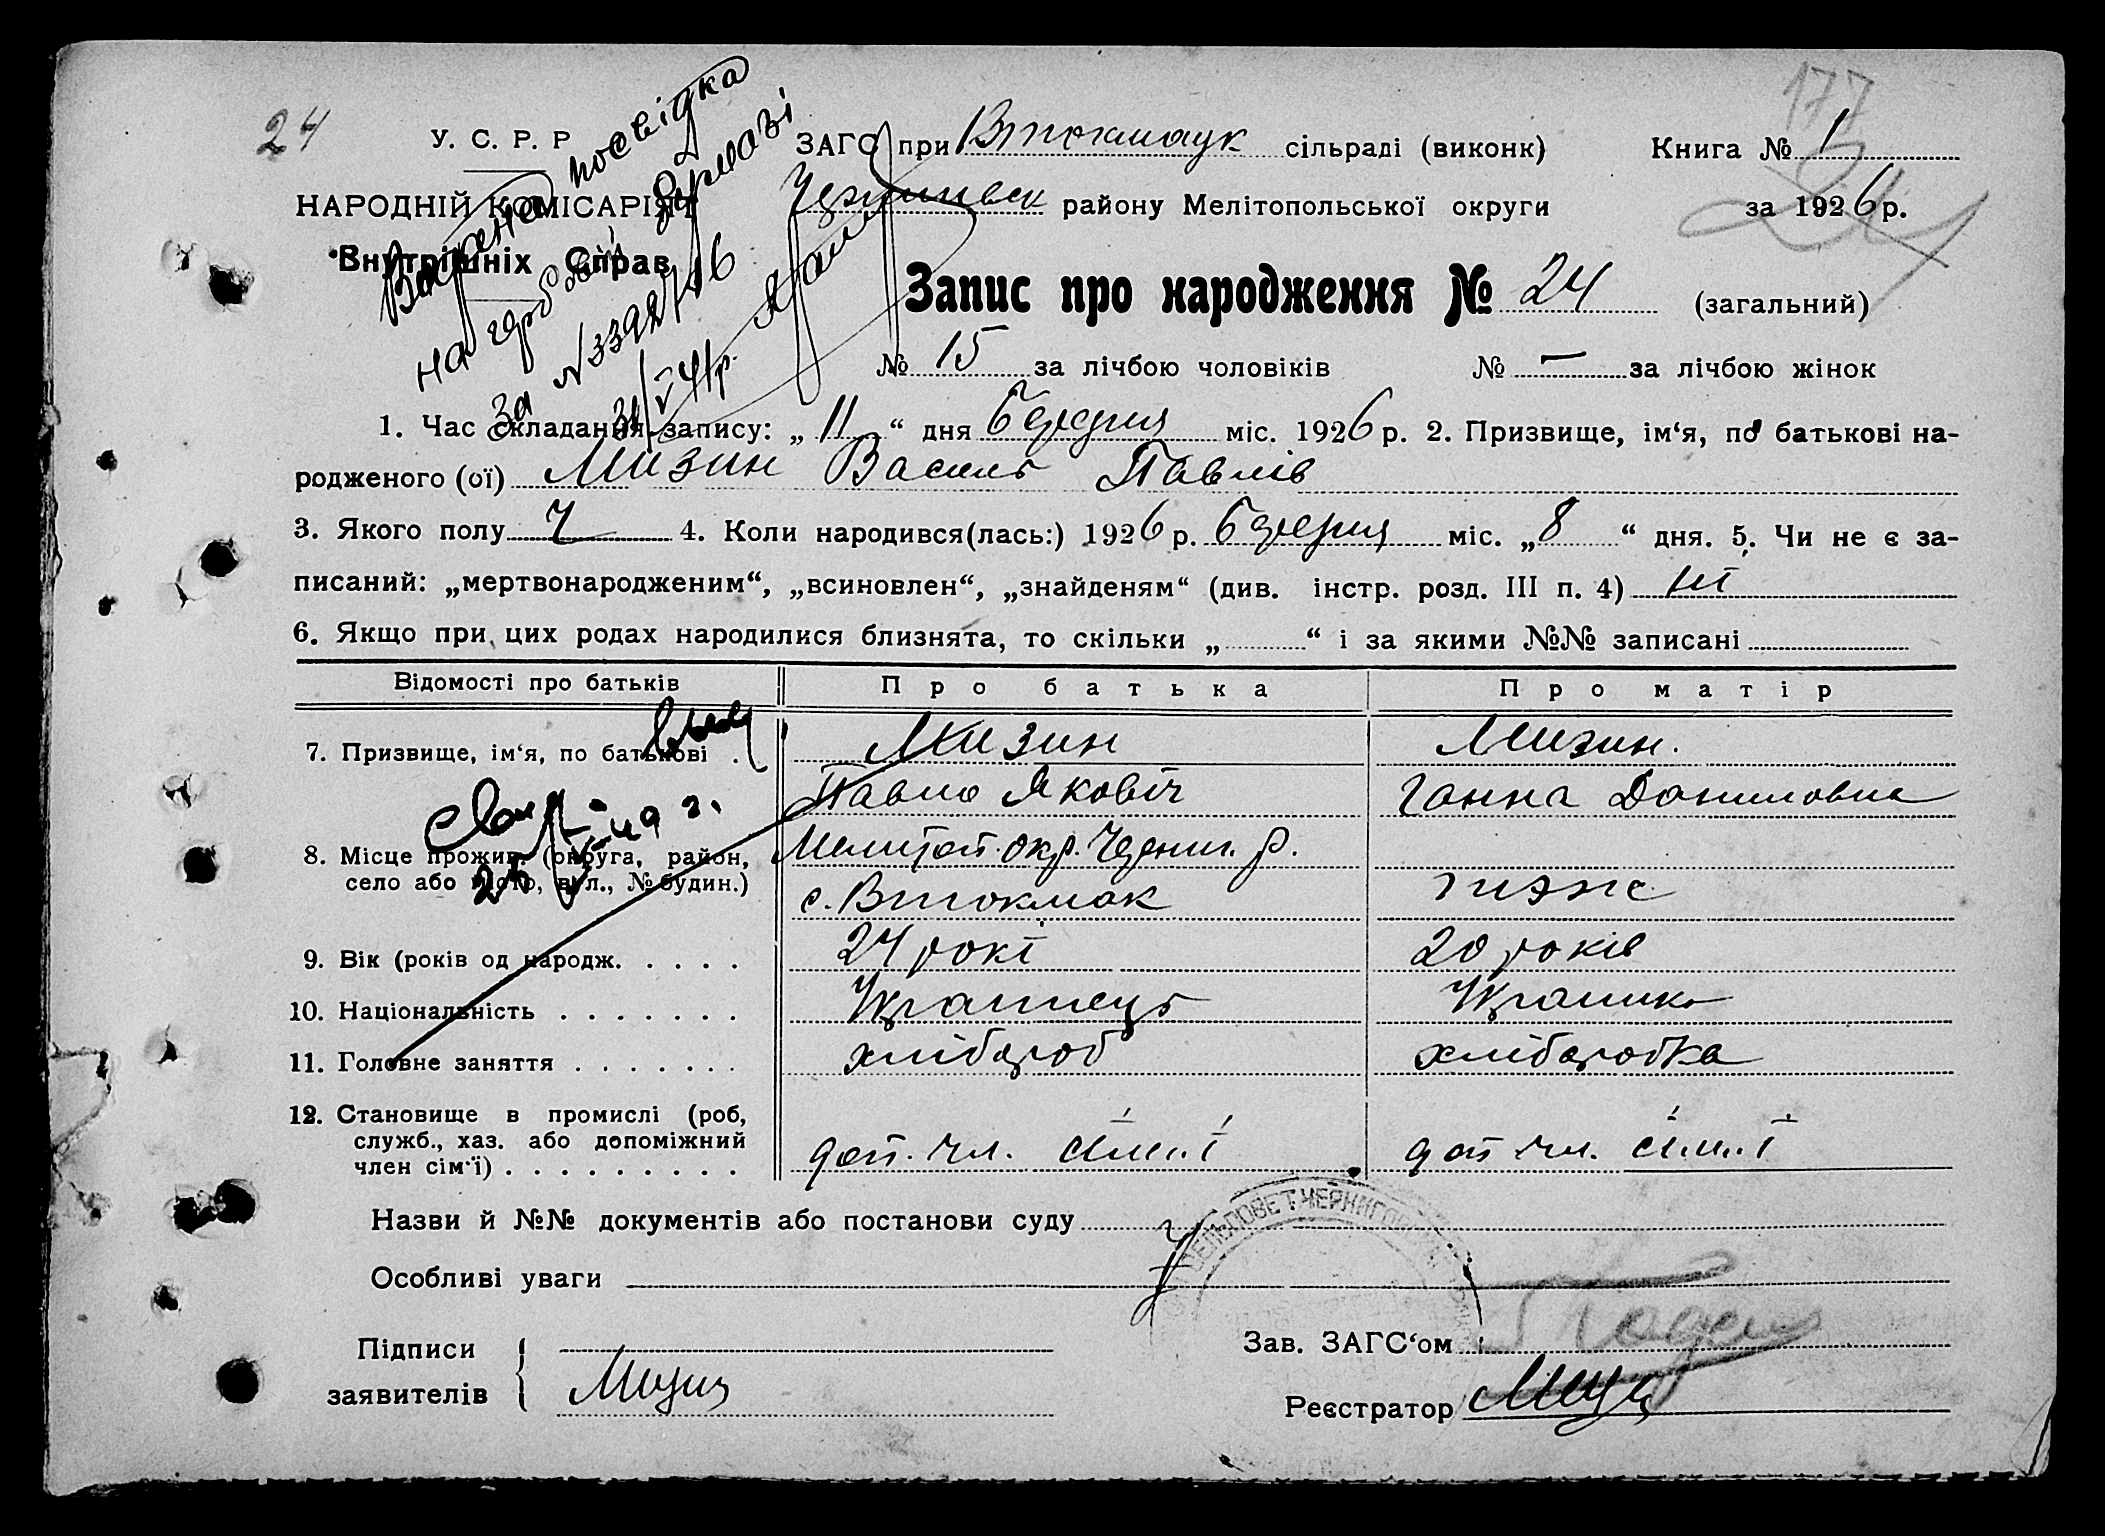 177
24
У. С. Р. Р.
ЗАГС при Втокмацк сільраді (виконк)
Книга № 1
НАРОДНІЙ КОМІСАРІЯТ
район у Мелітопольської округи
за 1926 р.
Внутрішніх Справ
24
Видана посвідка
на гербовій бумазі
за №
31/V 41 р.
Запис про народження № 24 (загальний)
№ 15 за лічбою чоловіків № — за лічбою жінок
1. Час складання запису: „ 11 “ дня березня міс. 1926 р. 2. Призвище, ім‘я, по батькові на-
родженого (ої) Мизин Василь Павлів
3. Якого полу Ч 4. Коли народився(лась:) 1926 р. березня міс. „ 8 “ дня. 5. Чи не є за-
писаний: „мертвонародженим“, „всиновлен“, „знайденям“ (див. інстр. розд. III п. 4) ні
6. Якщо при цих родах народилися близнята, то скільки „ “ і за якими №№ записані
Відомості про батьків Про батька Про матір
7. Призвище, ім‘я, по батькові Мизин Мизин.
Павло Яковіч Ганна Даниловна
8. Місце прожив. (округа, район, Мелитоп. окр. Черниг. р.
село або місто, вул., № будин.) с. Втокмак теж
9. Вік (років од народж. 24 рокі 20 років
10. Національність Українець Українка
11. Головне заняття хлібороб хліборобка
12. Становище в промислі (роб,
служб., хаз. або допоміжний
член сім‘ї) доп. чл. сімї доп чл. сімї
Назви й №№ документів або постанови суду
Особливі уваги
Підписи
заявителів Мизин
Зав. ЗАГС‘ом
Реєстратор